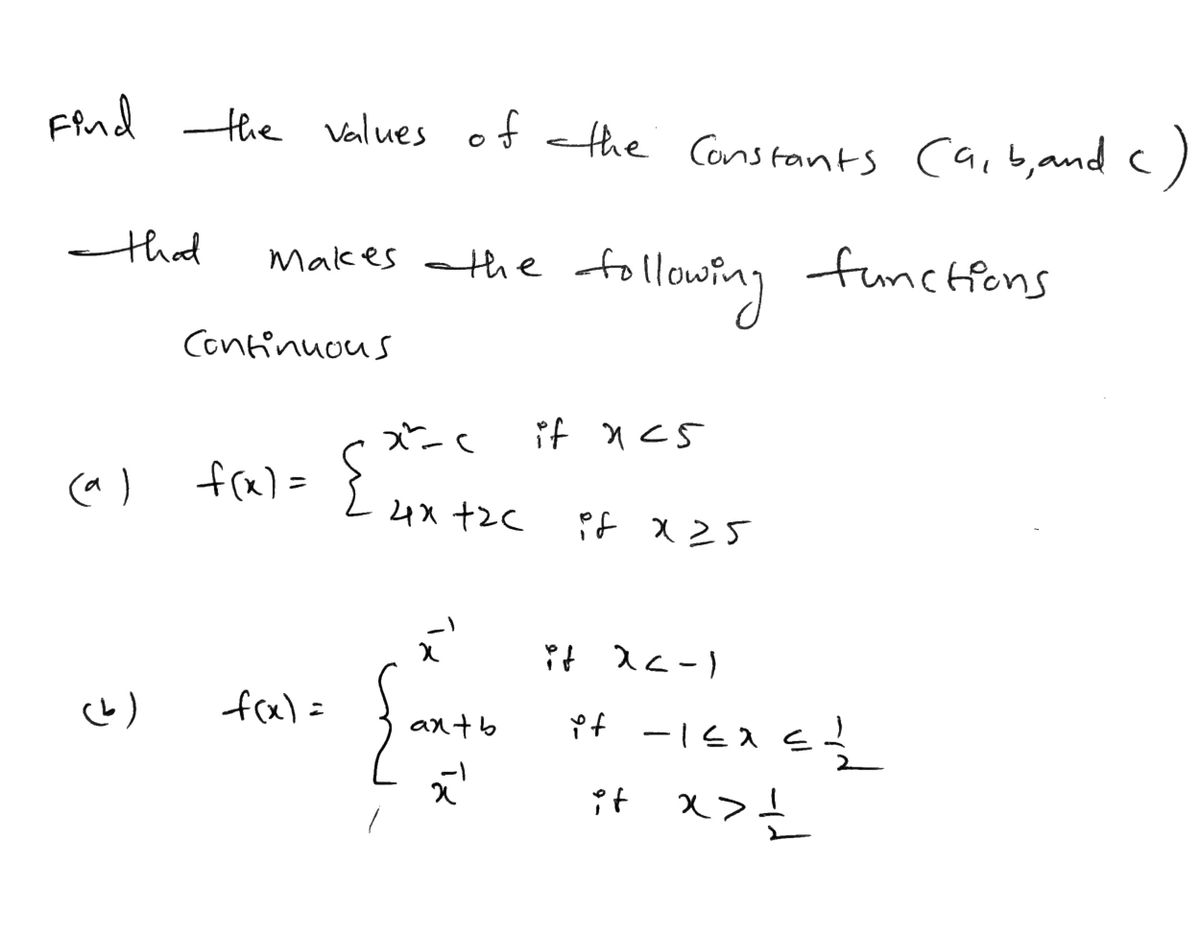 Find the values of the Constants (a, b, and c)
that makes the following functions
Continuous
(a) f(x) = { x² - c if x < 5
4x + 2c if x ≥ 5
(b) f(x) = { x⁻¹ if x < -1
ax + b if -1 ≤ x ≤ 1/2
x⁻¹ if x > 1/2